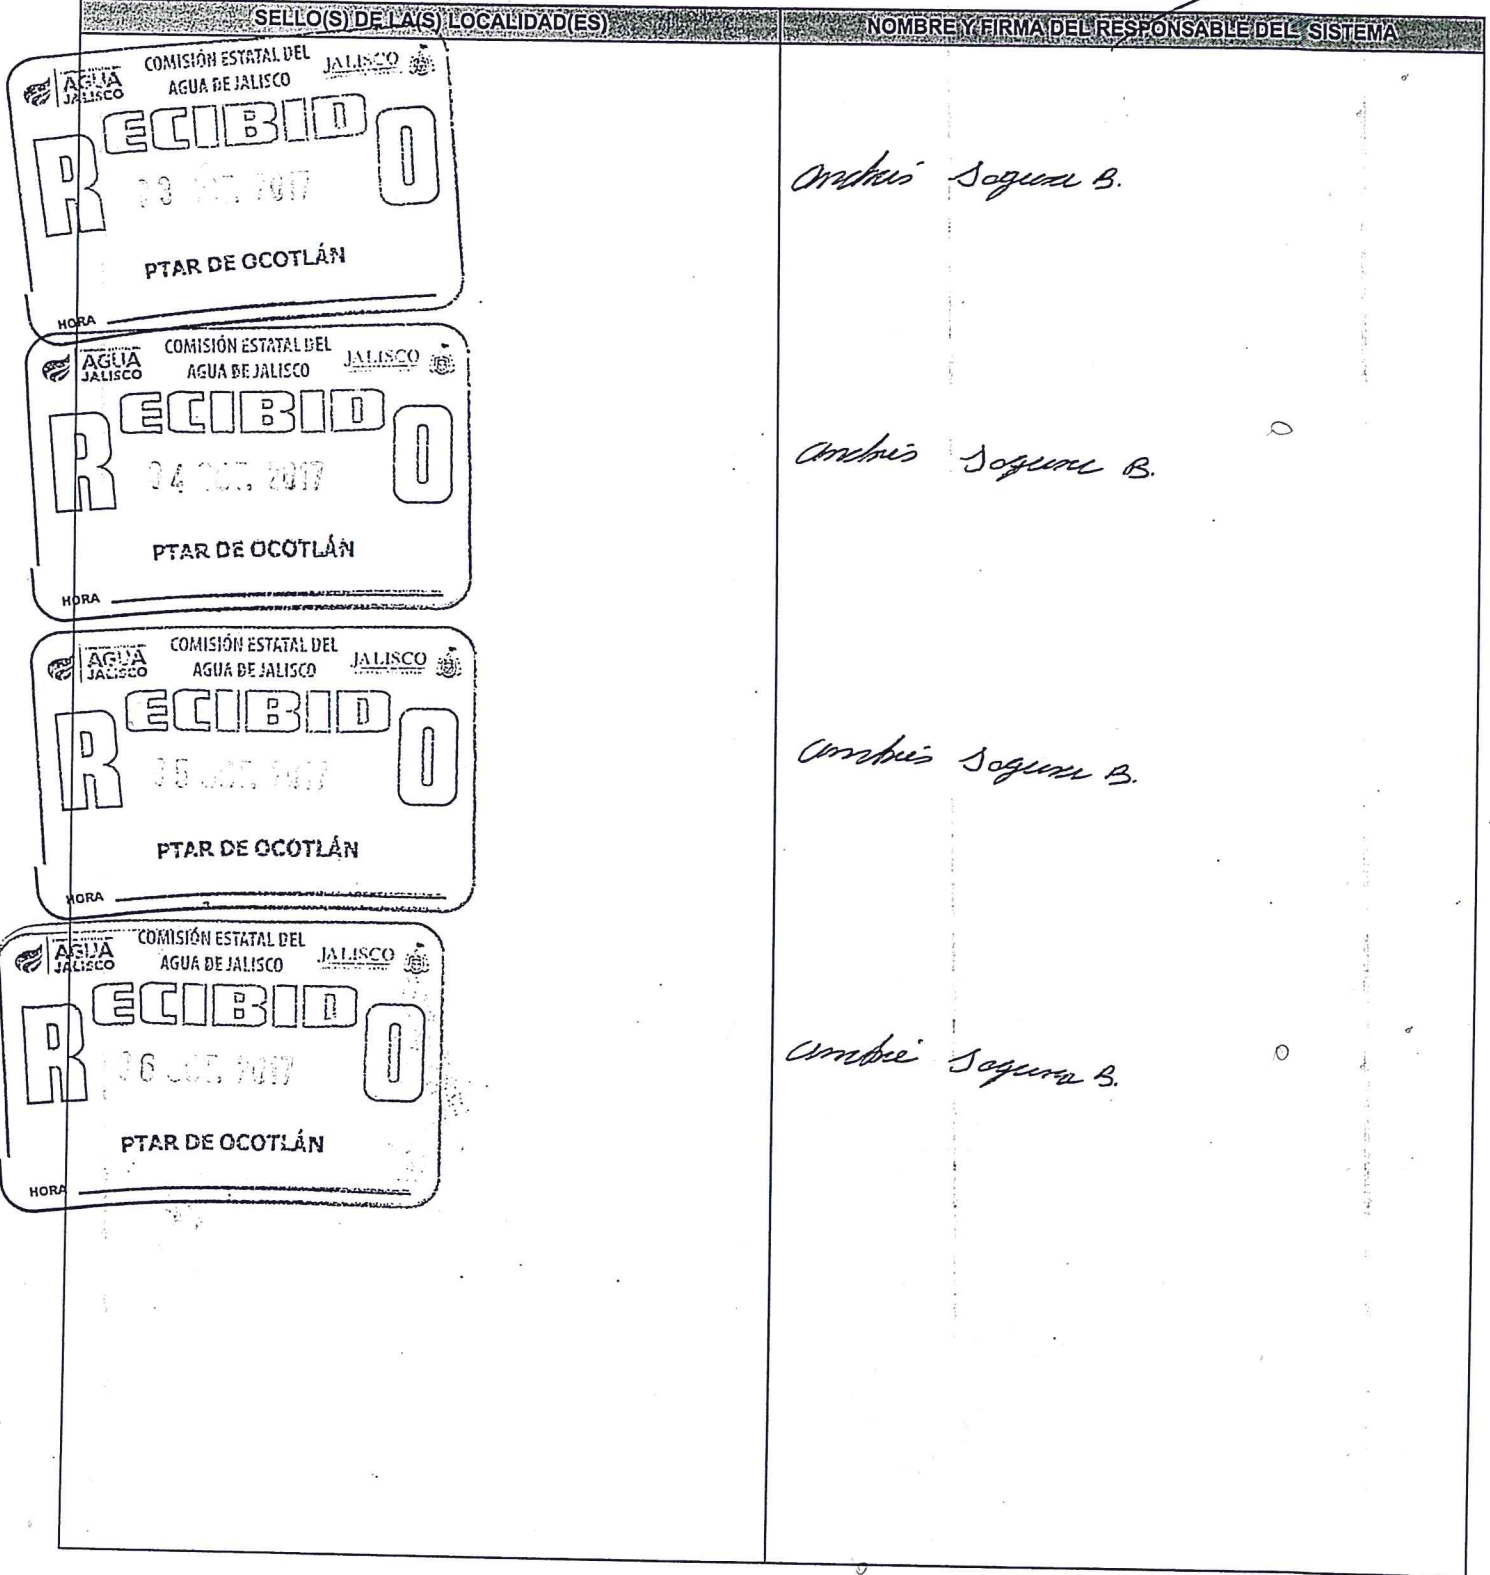 SELLO(S) DE LA(S) LOCALIDAD(ES)
NOMBRE Y FIRMA DEL RESPONSABLE DEL SISTEMA
AGUA
JALISCO
COMISIÓN ESTATAL DEL
AGUA DE JALISCO
JALISCO
RECIBIDO
2017
PTAR DE OCOTLÁN
HORA
B.
AGUA
JALISCO
COMISIÓN ESTATAL DEL
AGUA DE JALISCO
JALISCO
RECIBIDO
04 2017
PTAR DE OCOTLÁN
HORA
B.
AGUA
JALISCO
COMISIÓN ESTATAL DEL
AGUA DE JALISCO
JALISCO
RECIBIDO
05 2017
PTAR DE OCOTLÁN
HORA
B.
AGUA
JALISCO
COMISIÓN ESTATAL DEL
AGUA DE JALISCO
JALISCO
RECIBIDO
06 2017
PTAR DE OCOTLÁN
HORA
B.